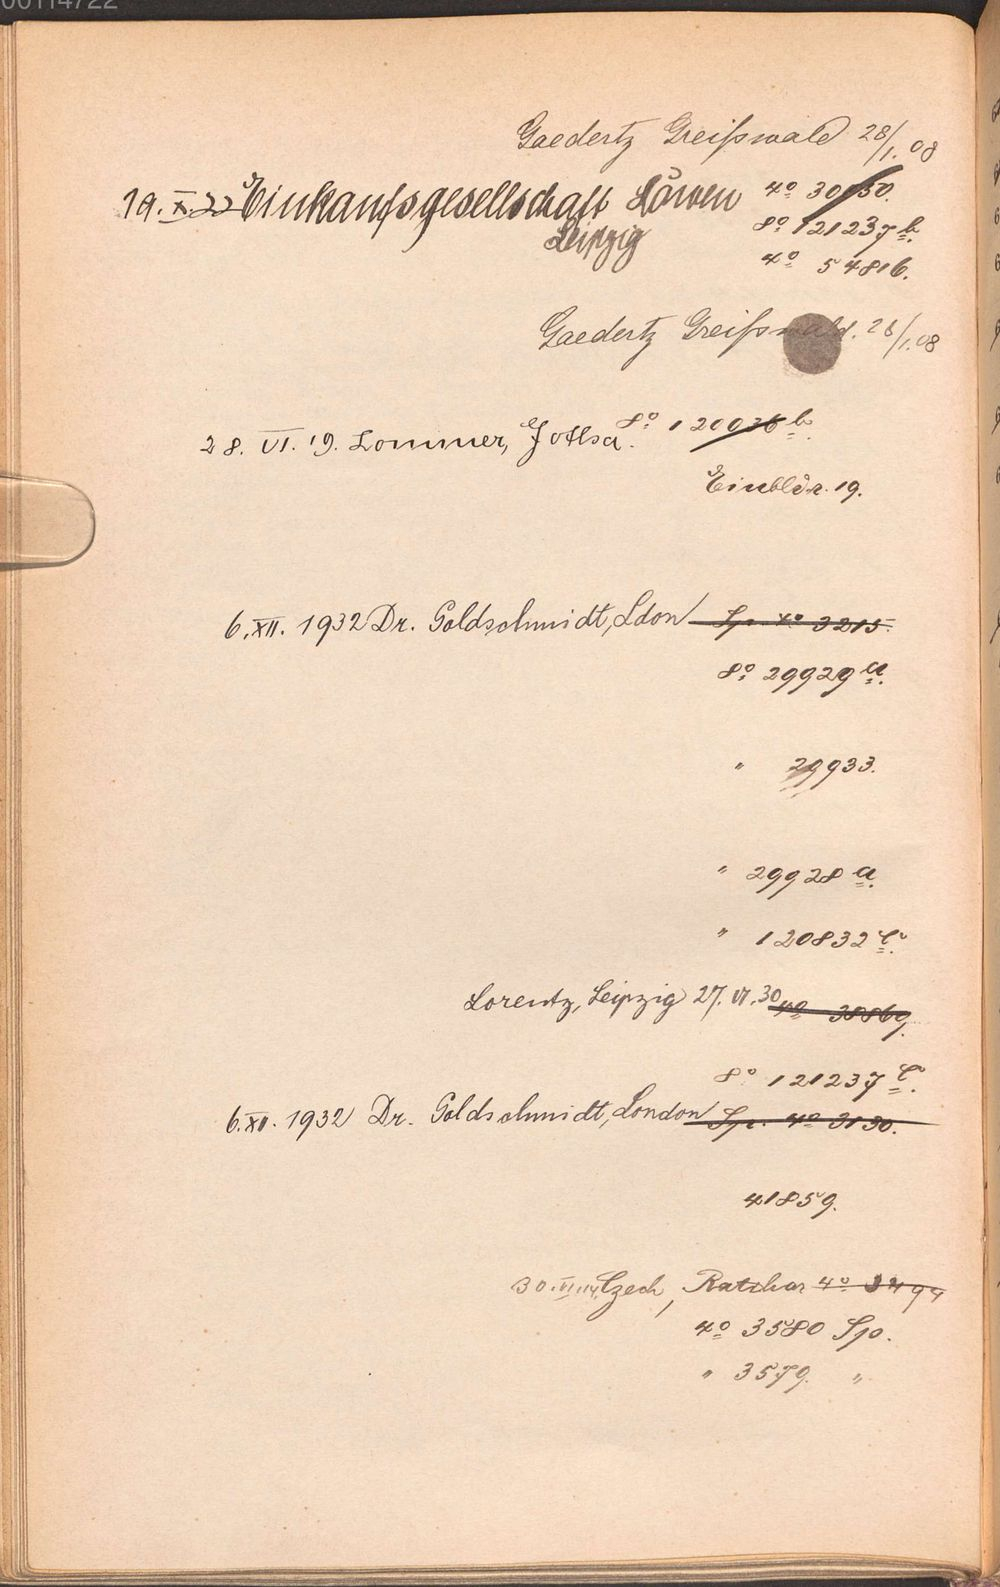 00114722
Gaedertz Greifswald 28/1. 08
19. X 22 Einkaufsgesellschaft Löwen 4º 30150.
Leipzig 8º 121237 b.
4º 54816.
Gaedertz Greifswald. 28/1. 08
28. VI. 19. Lommer, Jotha. 8º 120036 b.
Einbldr. 19.
6. XII. 1932 Dr. Goldschmidt, Ldon Sp. 4º 3215.
8º 29929 a.
" 29933.
" 29928 a.
" 120832 c.
Lorentz, Leipzig 27. VI. 30 4º 38869.
8º 121237 c.
6. XII. 1932 Dr. Goldschmidt, London Sp. 4º 3130.
41859.
30. VI. 14. Czech, Ratibor 4º 3499
4º 3580 Sp.
" 3579. "